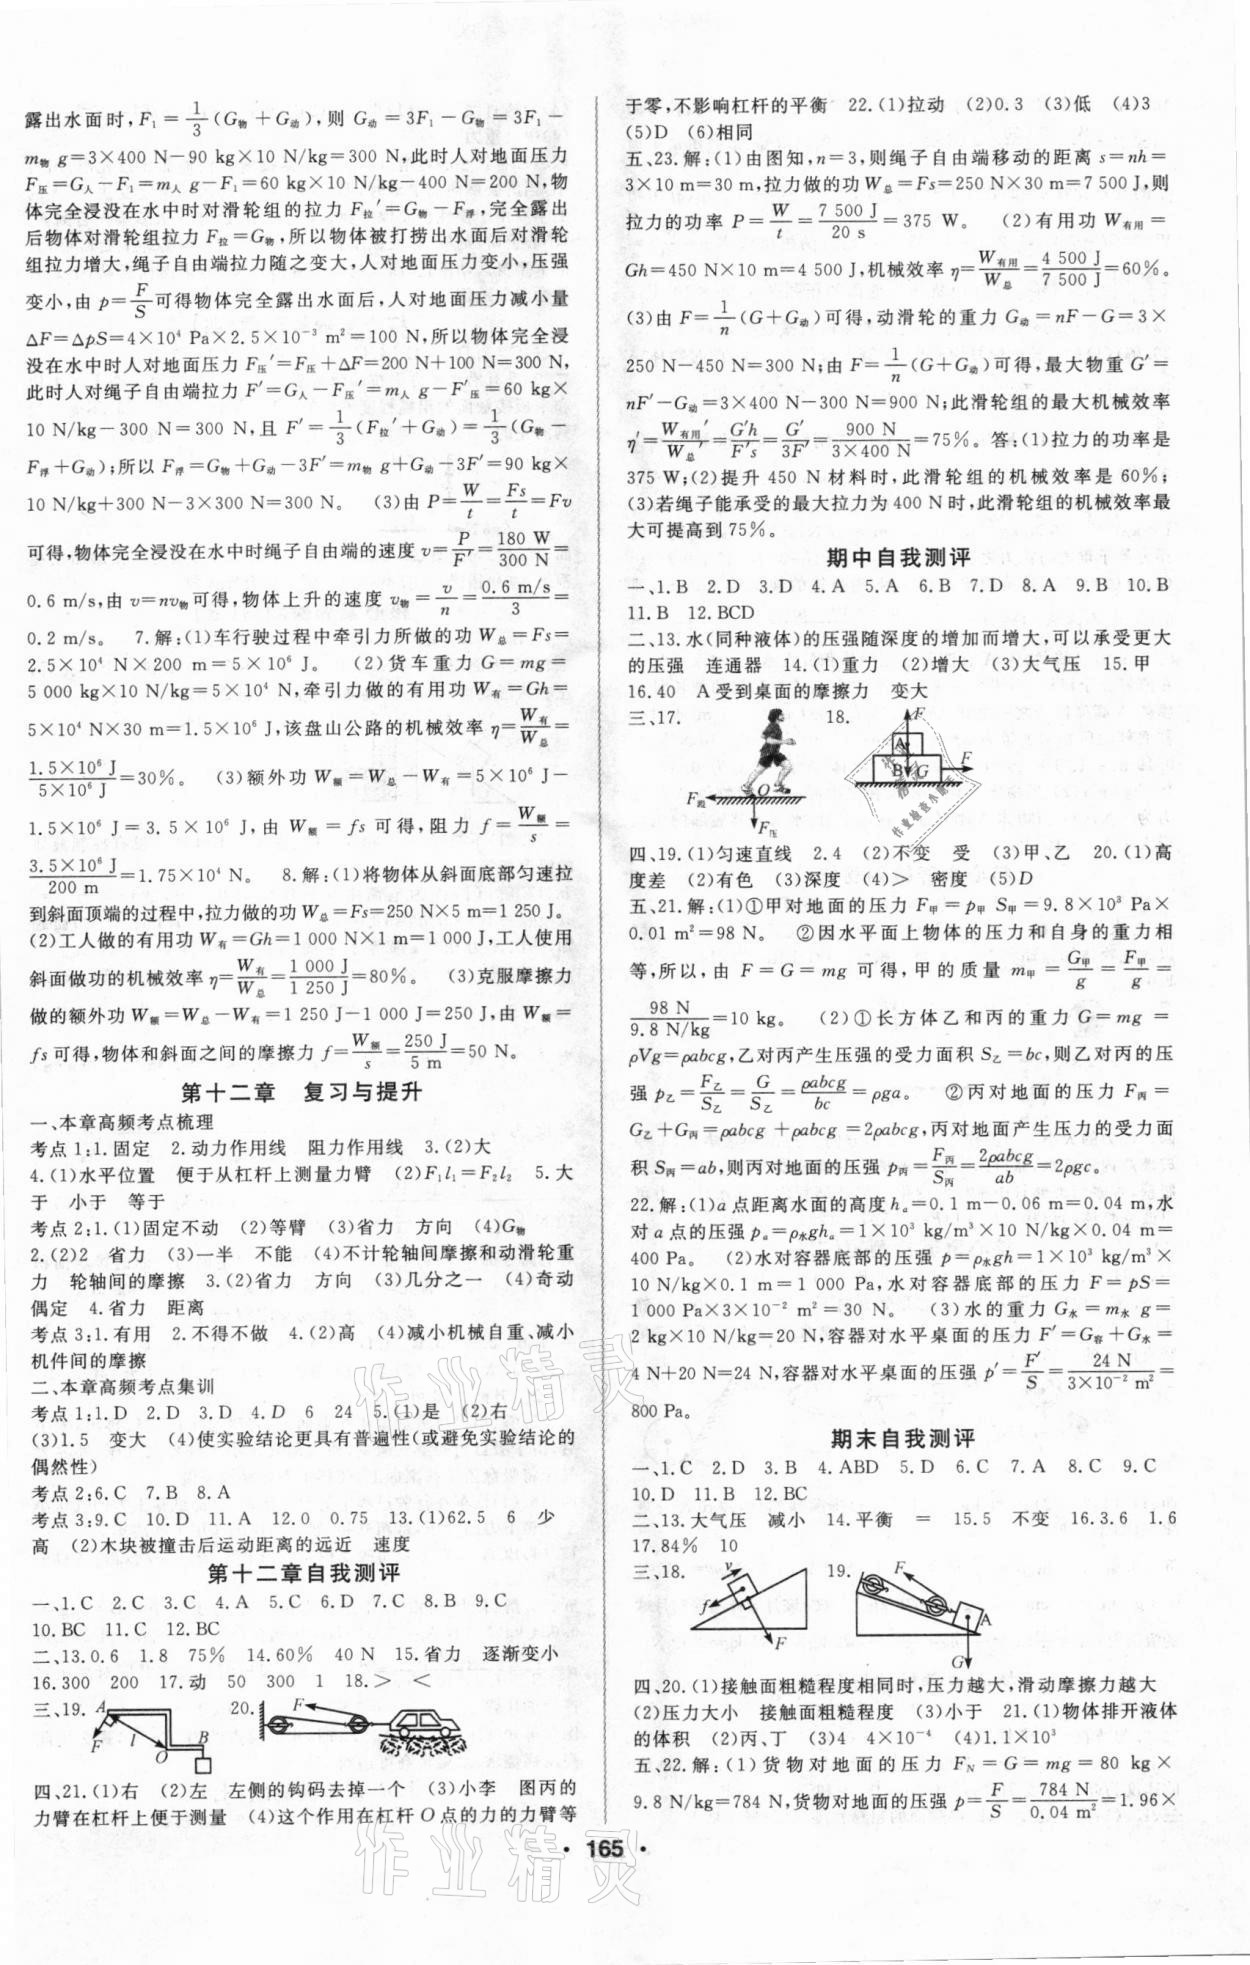 露出水面时,F₁=1/3(G物+G动),则 G动=3F₁-G物=3F₁-
m物 g=3×400 N-90 kg×10 N/kg=300 N,此时人对地面压力
F压=G人-F₁=m人 g-F₁=60 kg×10 N/kg-400 N=200 N,物
体完全浸没在水中时对滑轮组的拉力 F拉′=G物-F浮,完全露出
后物体对滑轮组拉力 F拉=G物,所以物体被打捞出水面后对滑轮
组拉力增大,绳子自由端拉力随之变大,人对地面压力变小,压强
变小,由 p=F/S可得物体完全露出水面后,人对地面压力减小量
ΔF=ΔpS=4×10⁴ Pa×2.5×10⁻³ m²=100 N,所以物体完全浸
没在水中时人对地面压力 F压′=F压+ΔF=200 N+100 N=300 N,
此时人对绳子自由端拉力 F′=G人-F压′=m人 g-F′压=60 kg×
10 N/kg-300 N=300 N,且 F′=1/3(F拉′+G动)=1/3(G物-
F浮+G动);所以 F浮=G物+G动-3F′=m物 g+G动-3F′=90 kg×
10 N/kg+300 N-3×300 N=300 N。 (3)由 P=W/t=Fs/t=Fv
可得,物体完全浸没在水中时绳子自由端的速度 v=P/F′=180 W/300 N=
0.6 m/s,由 v=nv物可得,物体上升的速度 v物=v/n=0.6 m/s/3=
0.2 m/s。 7.解:(1)车行驶过程中牵引力所做的功 W总=Fs=
2.5×10⁴ N×200 m=5×10⁶ J。 (2)货车重力 G=mg=
5 000 kg×10 N/kg=5×10⁴ N,牵引力做的有用功 W有=Gh=
5×10⁴ N×30 m=1.5×10⁶ J,该盘山公路的机械效率 η=W有/W总=
1.5×10⁶ J/5×10⁶ J=30%。 (3)额外功 W额=W总-W有=5×10⁶ J-
1.5×10⁶ J=3.5×10⁶ J,由 W额=fs 可得,阻力 f=W额/s=
3.5×10⁶ J/200 m=1.75×10⁴ N。 8.解:(1)将物体从斜面底部匀速拉
到斜面顶端的过程中,拉力做的功 W总=Fs=250 N×5 m=1 250 J。
(2)工人做的有用功 W有=Gh=1 000 N×1 m=1 000 J,工人使用
斜面做功的机械效率 η=W有/W总=1 000 J/1 250 J=80%。 (3)克服摩擦力
做的额外功 W额=W总-W有=1 250 J-1 000 J=250 J,由 W额=
fs 可得,物体和斜面之间的摩擦力 f=W额/s=250 J/5 m=50 N。
第十二章 复习与提升
一、本章高频考点梳理
考点 1:1.固定 2.动力作用线 阻力作用线 3.(2)大
4.(1)水平位置 便于从杠杆上测量力臂 (2)F₁l₁=F₂l₂ 5.大
于 小于 等于
考点 2:1.(1)固定不动 (2)等臂 (3)省力 方向 (4)G物
2.(2)2 省力 (3)一半 不能 (4)不计轮轴间摩擦和动滑轮重
力 轮轴间的摩擦 3.(2)省力 方向 (3)几分之一 (4)奇动
偶定 4.省力 距离
考点 3:1.有用 2.不得不做 4.(2)高 (4)减小机械自重、减小
机件间的摩擦
二、本章高频考点集训
考点 1:1.D 2.D 3.D 4.D 6 24 5.(1)是 (2)右
(3)1.5 变大 (4)使实验结论更具有普遍性(或避免实验结论的
偶然性)
考点 2:6.C 7.B 8.A
考点 3:9.C 10.D 11.A 12.0 0.75 13.(1)62.5 6 少
高 (2)木块被撞击后运动距离的远近 速度
第十二章自我测评
一、1.C 2.C 3.C 4.A 5.C 6.D 7.C 8.B 9.C
10.BC 11.C 12.BC
二、13.0.6 1.8 75% 14.60% 40 N 15.省力 逐渐变小
16.300 200 17.动 50 300 1 18.> <
三、19. A F l O B 20. F
四、21.(1)右 (2)左 左侧的钩码去掉一个 (3)小李 图丙的
力臂在杠杆上便于测量 (4)这个作用在杠杆 O 点的力的力臂等
于零,不影响杠杆的平衡 22.(1)拉动 (2)0.3 (3)低 (4)3
(5)D (6)相同
五、23.解:(1)由图知,n=3,则绳子自由端移动的距离 s=nh=
3×10 m=30 m,拉力做的功 W总=Fs=250 N×30 m=7 500 J,则
拉力的功率 P=W/t=7 500 J/20 s=375 W。 (2)有用功 W有用=
Gh=450 N×10 m=4 500 J,机械效率 η=W有用/W总=4 500 J/7 500 J=60%。
(3)由 F=1/n(G+G动)可得,动滑轮的重力 G动=nF-G=3×
250 N-450 N=300 N;由 F=1/n(G+G动)可得,最大物重 G′=
nF′-G动=3×400 N-300 N=900 N;此滑轮组的最大机械效率
η′=W有用′/W总′=G′h/F′s=G′/3F′=900 N/3×400 N=75%。答:(1)拉力的功率是
375 W;(2)提升 450 N 材料时,此滑轮组的机械效率是 60%;
(3)若绳子能承受的最大拉力为 400 N 时,此滑轮组的机械效率最
大可提高到 75%。
期中自我测评
一、1.B 2.D 3.D 4.A 5.A 6.B 7.D 8.A 9.B 10.B
11.B 12.BCD
二、13.水(同种液体)的压强随深度的增加而增大,可以承受更大
的压强 连通器 14.(1)重力 (2)增大 (3)大气压 15.甲
16.40 A 受到桌面的摩擦力 变大
三、17. O F压 18. F A F B G
四、19.(1)匀速直线 2.4 (2)不变 受 (3)甲、乙 20.(1)高
度差 (2)有色 (3)深度 (4)> 密度 (5)D
五、21.解:(1)①甲对地面的压力 F甲=p甲 S甲=9.8×10³ Pa×
0.01 m²=98 N。 ②因水平面上物体的压力和自身的重力相
等,所以,由 F=G=mg 可得,甲的质量 m甲=G甲/g=F甲/g=
98 N/9.8 N/kg=10 kg。 (2)①长方体乙和丙的重力 G=mg=
ρVg=ρabcg,乙对丙产生压强的受力面积 S乙=bc,则乙对丙的压
强 p乙=F乙/S乙=G/S乙=ρabcg/bc=ρga。 ②丙对地面的压力 F丙=
G乙+G丙=ρabcg+ρabcg=2ρabcg,丙对地面产生压力的受力面
积 S丙=ab,则丙对地面的压强 p丙=F丙/S丙=2ρabcg/ab=2ρgc。
22.解:(1)a 点距离水面的高度 hₐ=0.1 m-0.06 m=0.04 m,水
对 a 点的压强 pₐ=ρ水ghₐ=1×10³ kg/m³×10 N/kg×0.04 m=
400 Pa。 (2)水对容器底部的压强 p=ρ水gh=1×10³ kg/m³×
10 N/kg×0.1 m=1 000 Pa,水对容器底部的压力 F=pS=
1 000 Pa×3×10⁻² m²=30 N。 (3)水的重力 G水=m水 g=
2 kg×10 N/kg=20 N,容器对水平桌面的压力 F′=G容+G水=
4 N+20 N=24 N,容器对水平桌面的压强 p′=F′/S=24 N/3×10⁻² m²=
800 Pa。
期末自我测评
一、1.C 2.D 3.B 4.ABD 5.D 6.C 7.A 8.C 9.C
10.D 11.B 12.BC
二、13.大气压 减小 14.平衡 = 15.5 不变 16.3.6 1.6
17.84% 10
三、18. v f F 19. F A G
四、20.(1)接触面粗糙程度相同时,压力越大,滑动摩擦力越大
(2)压力大小 接触面粗糙程度 (3)小于 21.(1)物体排开液体
的体积 (2)丙、丁 (3)4 4×10⁻⁴ (4)1.1×10³
五、22.解:(1)货物对地面的压力 F_N=G=mg=80 kg×
9.8 N/kg=784 N,货物对地面的压强 p=F/S=784 N/0.04 m²=1.96×
· 165 ·
作业精灵
作业精灵